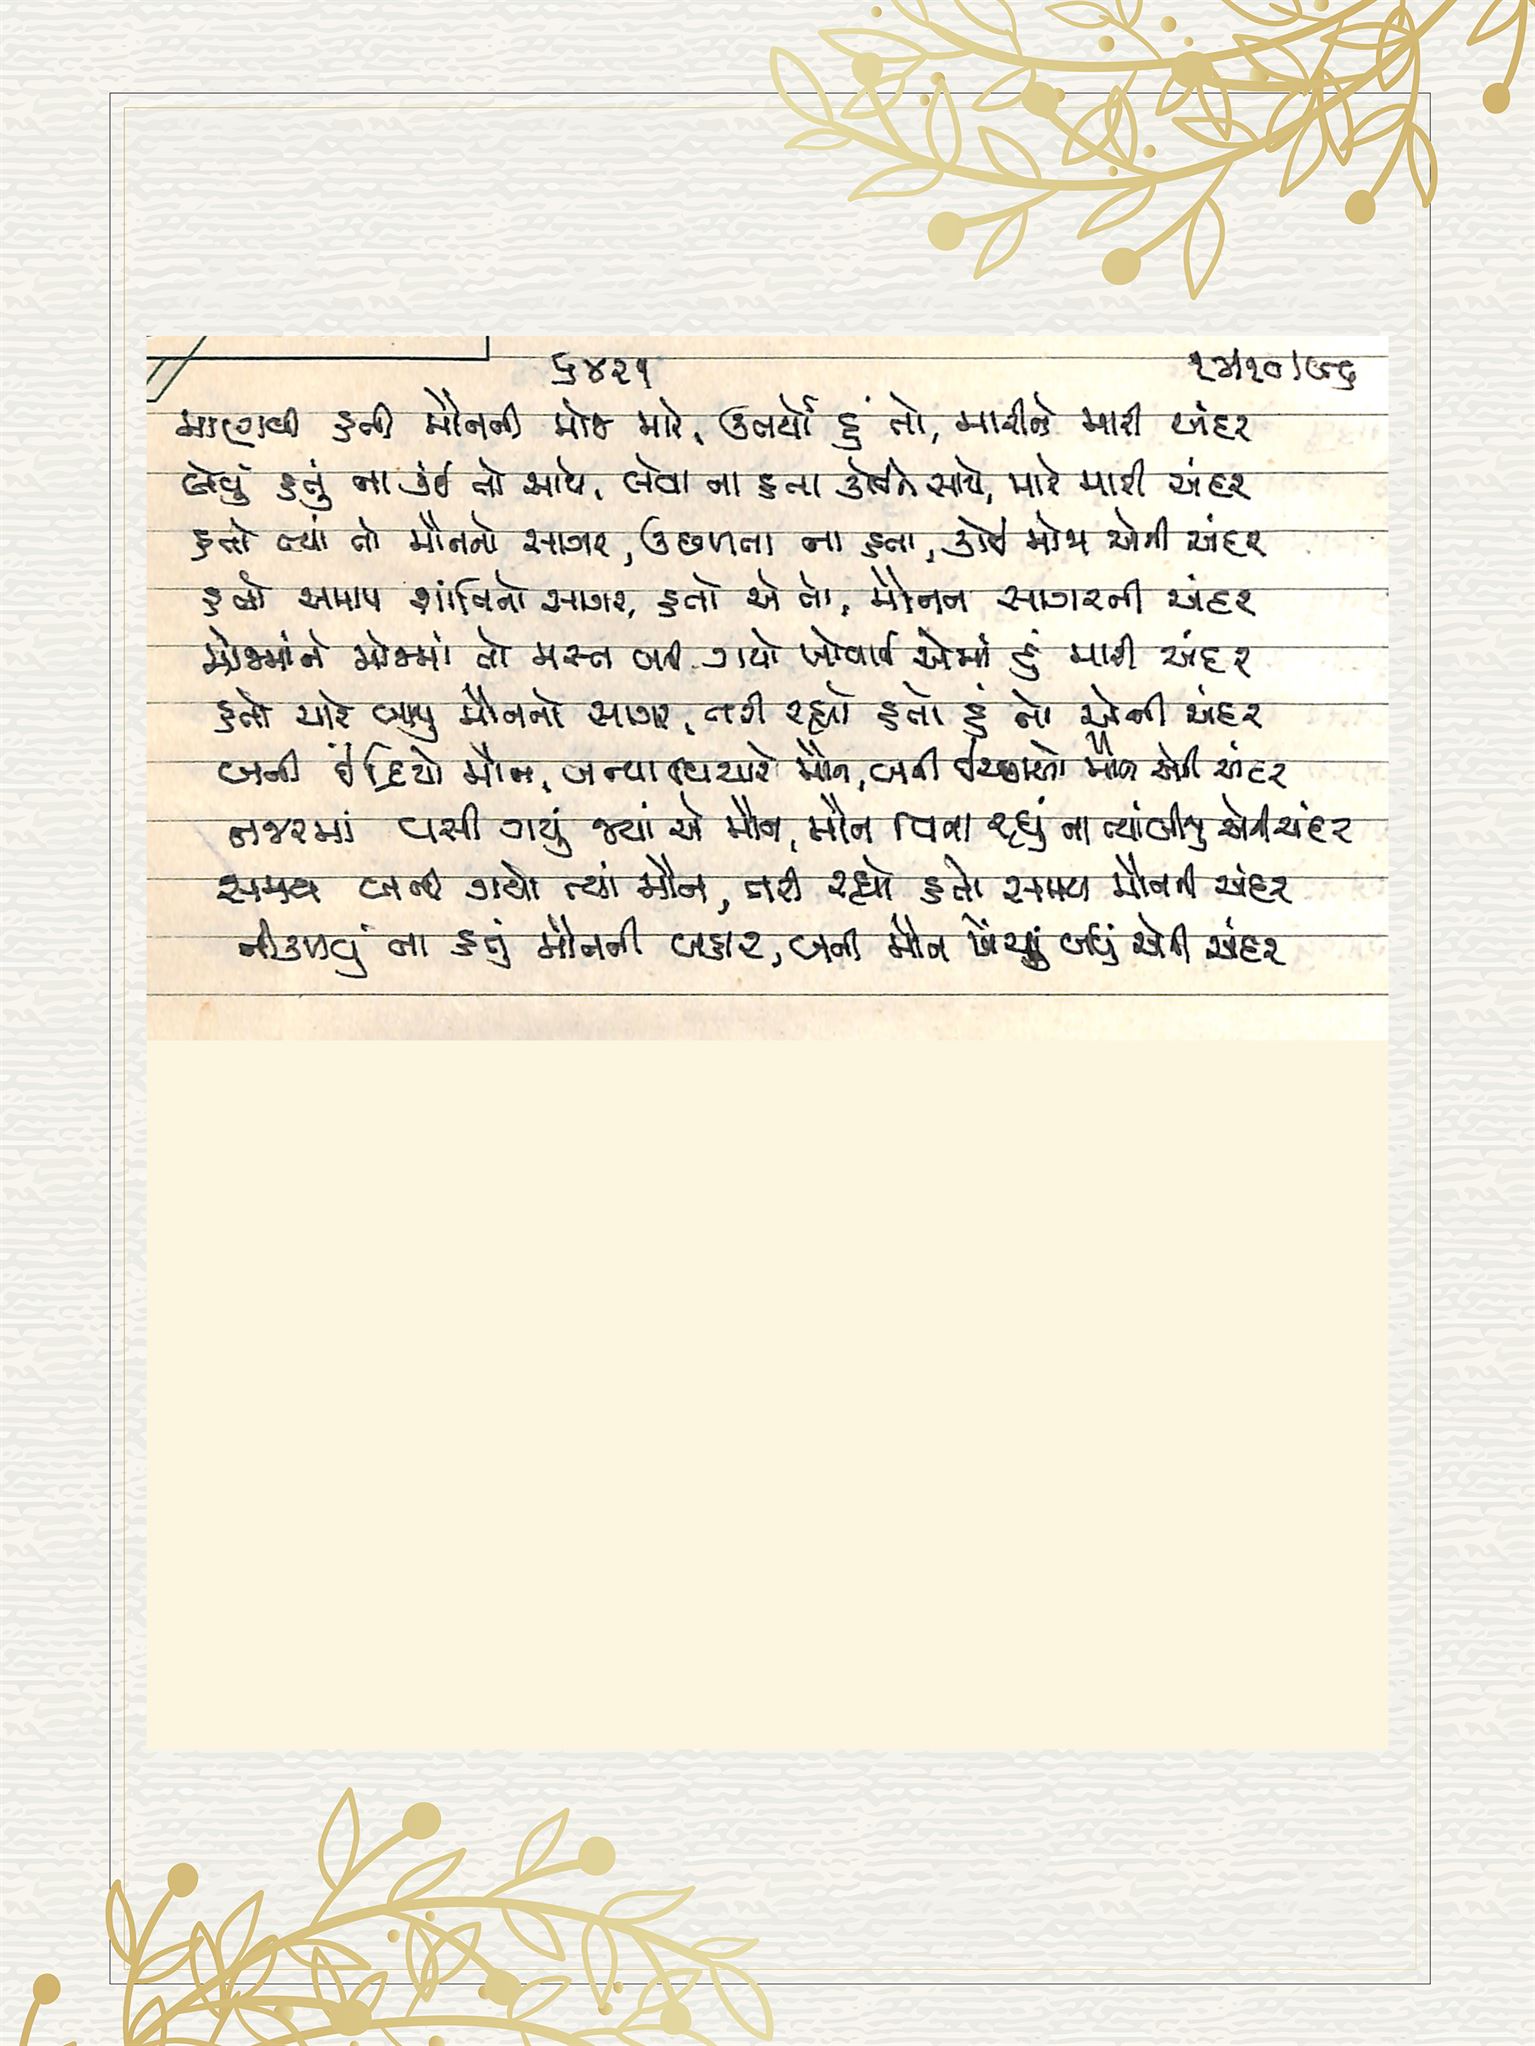 ૬૪૨૧
માણવી હતી મૌનની મોજ મારે, ઉતર્યો હું તો, મારીને મારી અંદર
લેવું હતું ના કંઈ તો સાથે, લેવા ના હતા કોઈને સાથે, મારે મારી અંદર
હતો ત્યાં તો મૌનનો સાગર, ઉછળતા ના હતા, કોઈ મોજા એની અંદર
હતો અમાપ શાંતિનો સાગર, હતો એ તો, મૌનના સાગરની અંદર
મોજમાંને મોજમાં તો મસ્ત બની ગયો ખોવાઈ એમાં હું મારી અંદર
હતો ચારે બાજુ મૌનનો સાગર, તરી રહ્યો હતો હું તો એની અંદર
બની ઈંદ્રિયો મૌન, બન્યા વિચારો મૌન, બની ઈચ્છાઓ મૌન એની અંદર
નજરમાં વસી ગયું જ્યાં એ મૌન, મૌન વિના રહ્યું ના ત્યાં બીજું એની અંદર
સમય બની ગયો ત્યાં મૌન, તરી રહ્યો હતો સમય મૌનની અંદર
નીકળવું ના હતું મૌનની બહાર, બની મૌન ખેંચ્યું બધું એની અંદર